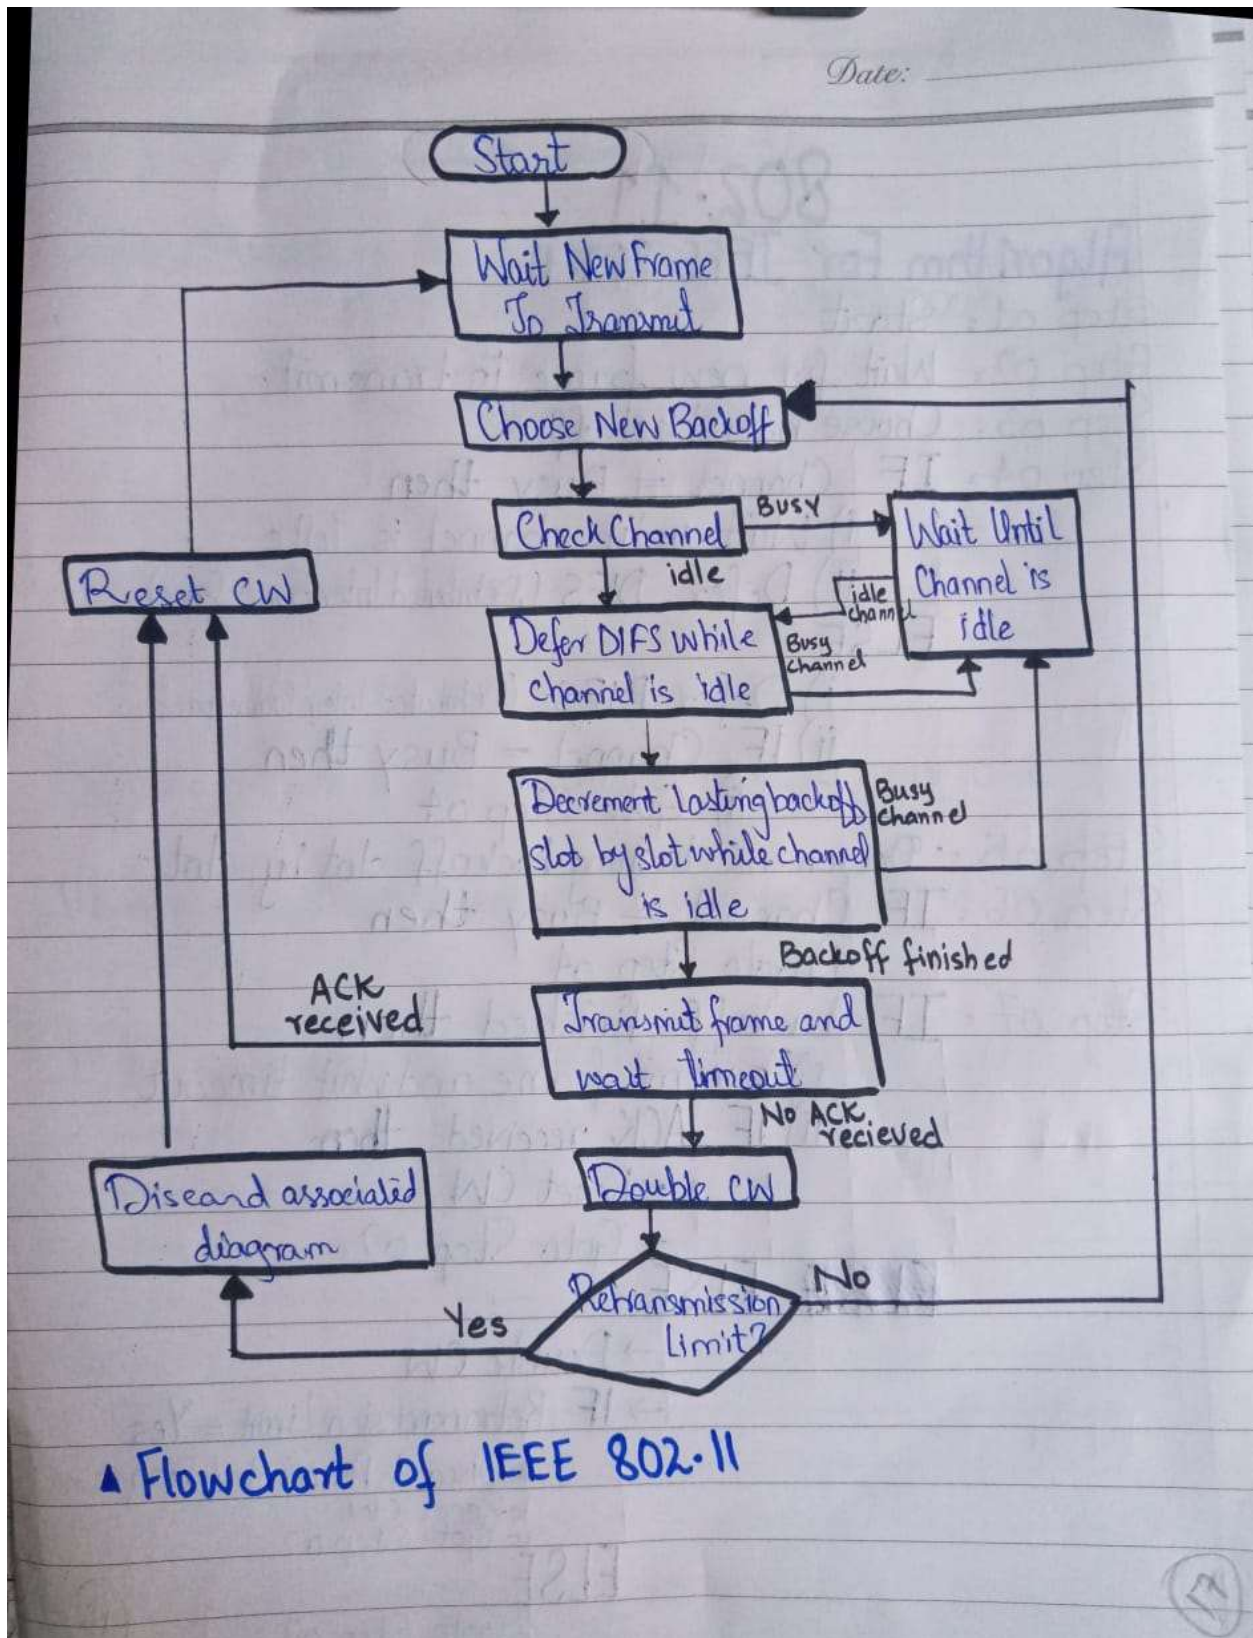 Date:
Start
Wait New Frame
To Transmit
Choose New Backoff
Check Channel
Busy
Wait Until
Channel is
idle
idle
Reset CW
idle
channel
Defer DIFS while
channel is idle
Busy
channel
Decrement lasting backoff
slot by slot while channel
is idle
Busy
channel
Backoff finished
ACK
received
Transmit frame and
wait timeout
No ACK
recieved
Double CW
Discard associated
diagram
Retransmission
Limit?
No
Yes
Flowchart of IEEE 802.11
17